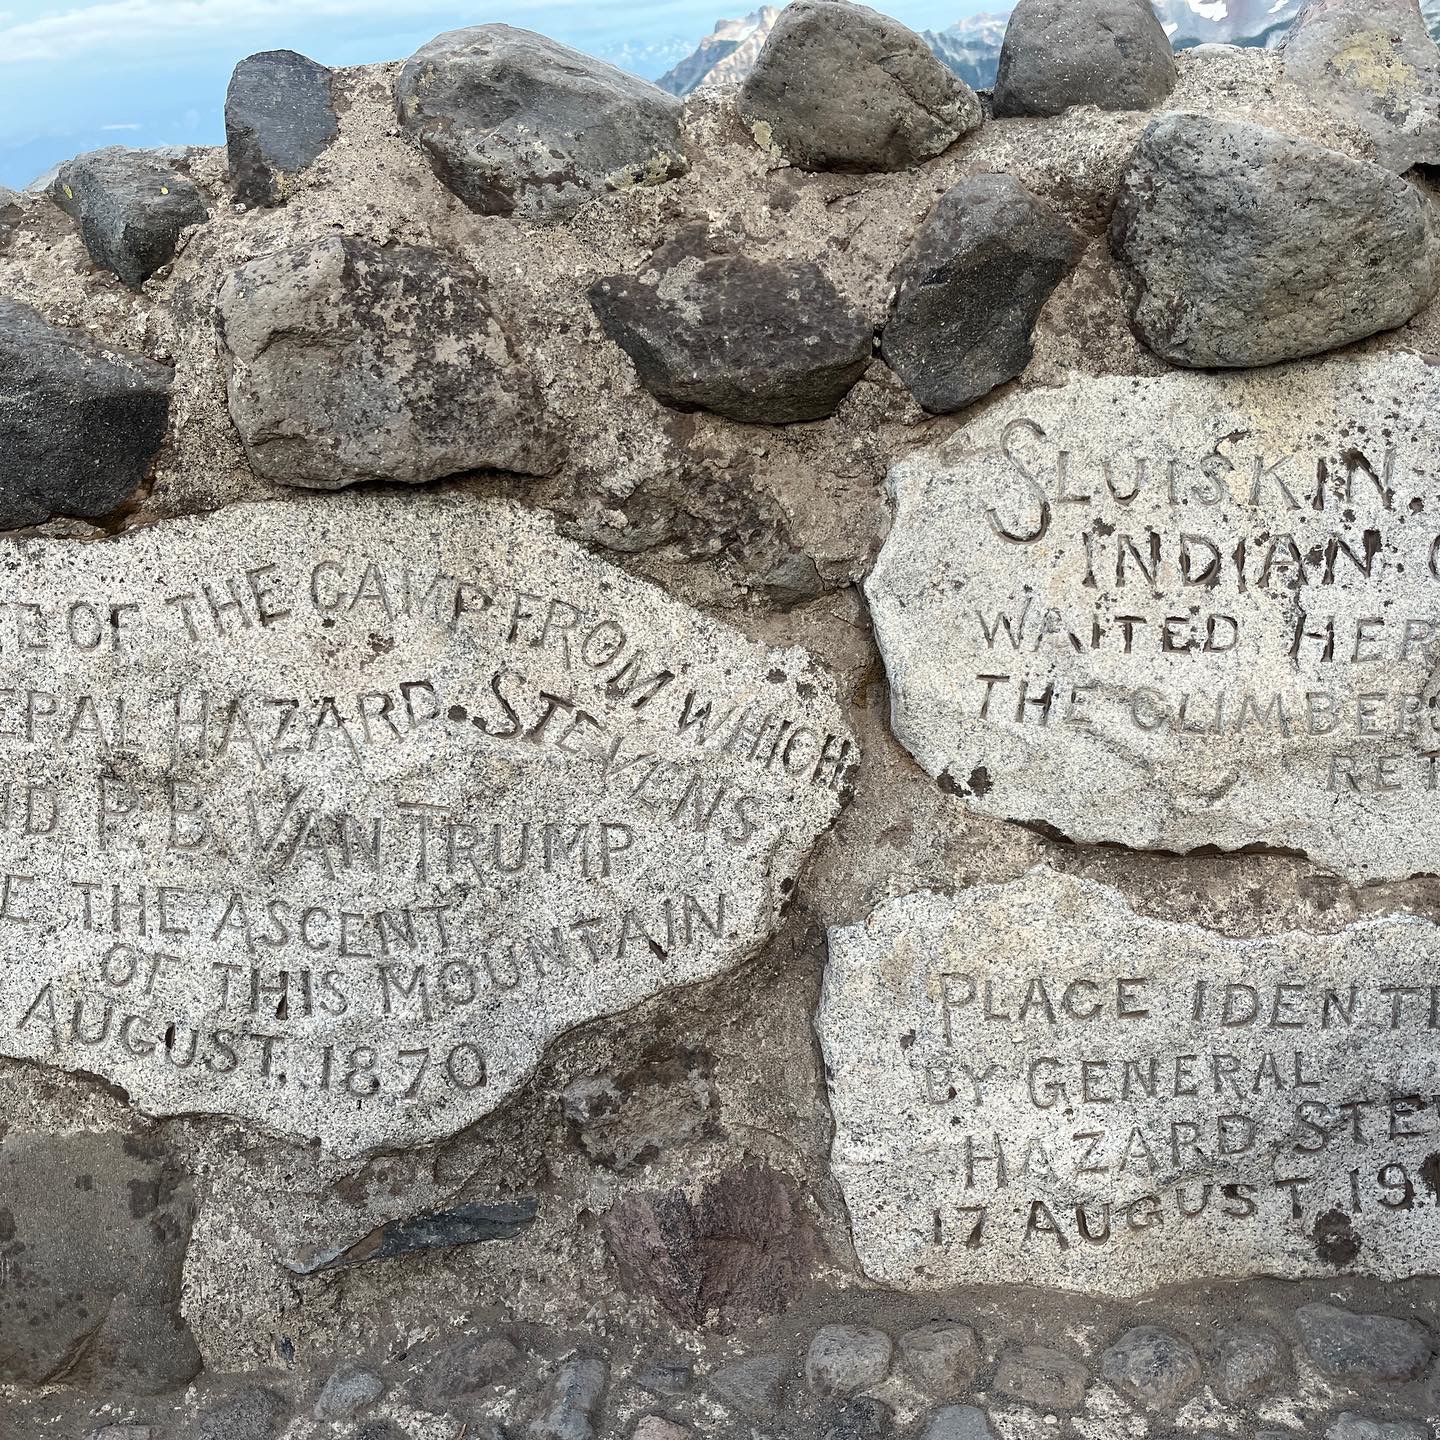 TE OF THE CAMP FROM WHICH
ERAL HAZARD STEVENS
ND P.B. VAN TRUMP
E THE ASCENT
OF THIS MOUNTAIN
AUGUST. 1870
SLUISKIN.
INDIAN G
WAITED HER
THE CLIMBERS
RET
PLACE IDENTI
BY GENERAL
HAZARD STE
17 AUGUST 19